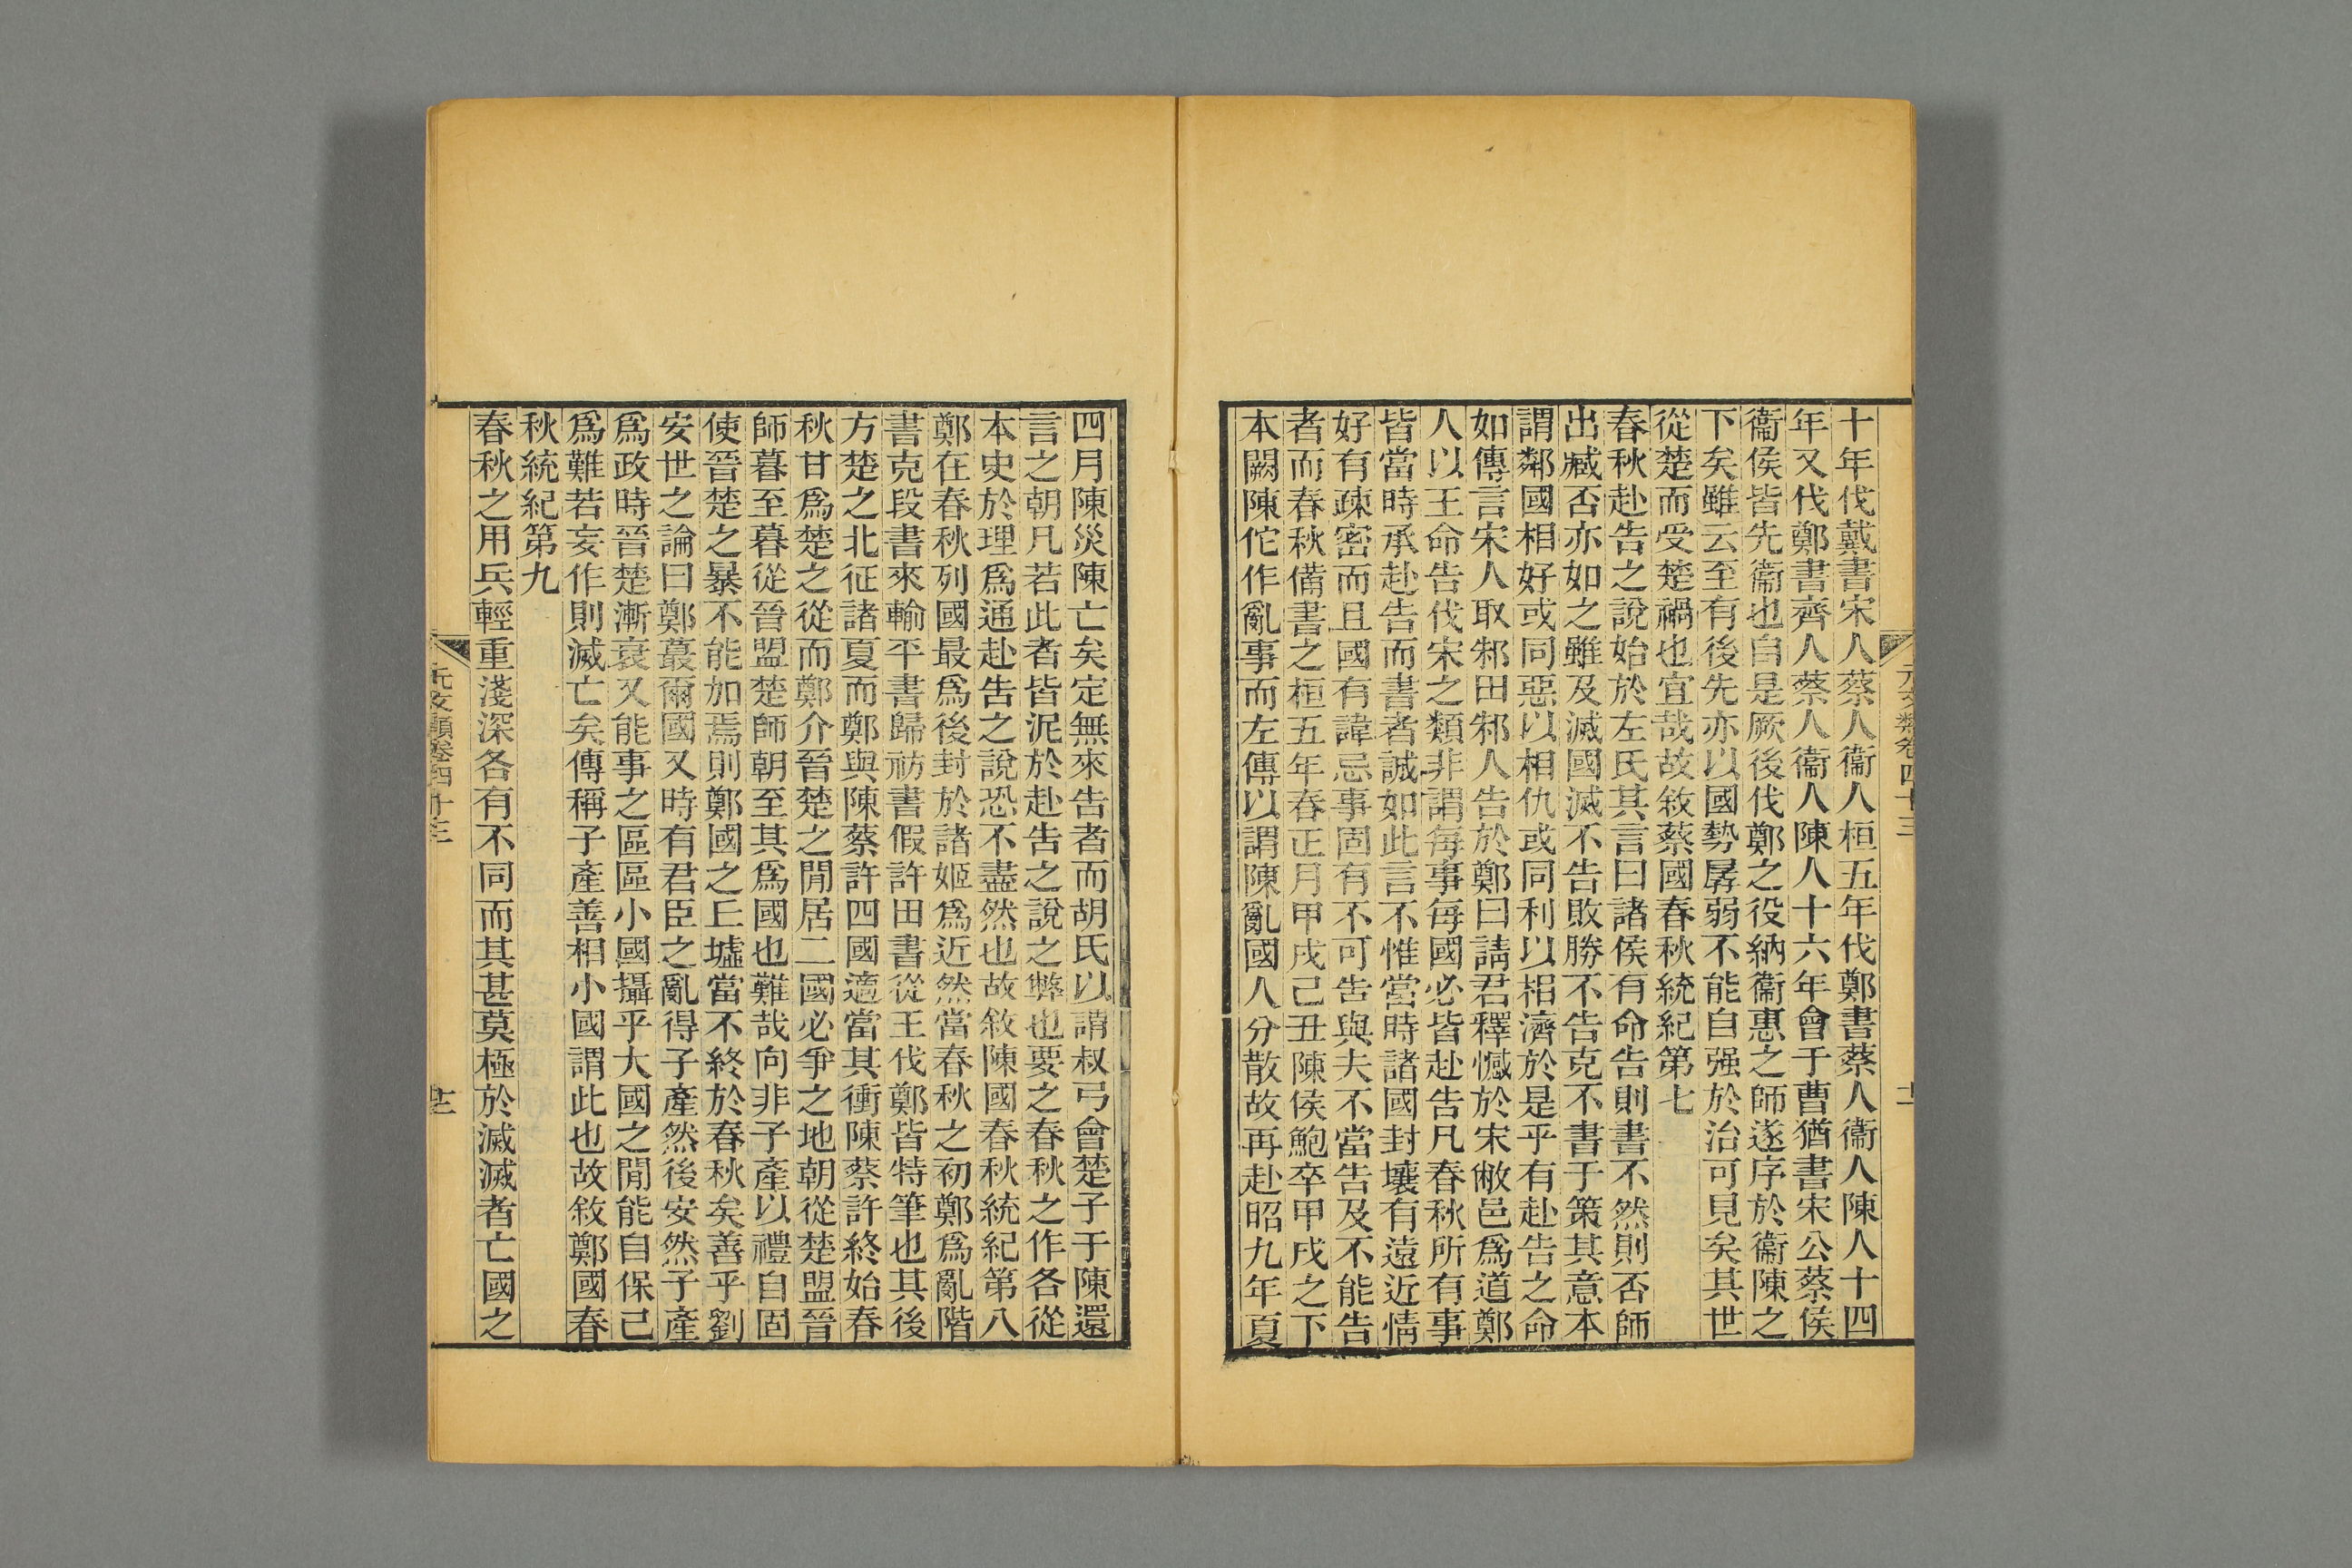 元文類卷四十三
十年伐戴書宋人蔡人衞人桓五年伐鄭書蔡人衞人陳人十四
年又伐鄭書齊人蔡人衞人陳人十六年會于曹猶書宋公蔡侯
衞侯皆先衞也自是厥後伐鄭之役納衞惠之師遂序於衞陳之
下矣雖云至有後先亦以國勢孱弱不能自强於治可見矣其世
從楚而受楚禍也宜哉故敘蔡國春秋統紀第七
春秋赴告之說始於左氏其言曰諸侯有命告則書不然則否師
出臧否亦如之雖及滅國滅不告敗勝不告克不書于策其意本
謂鄰國相好或同惡以相仇或同利以相濟於是乎有赴告之命
如傳言宋人取邾田邾人告於鄭曰請君釋憾於宋敝邑爲道鄭
人以王命告伐宋之類非謂每事每國必皆赴告凡春秋所有事
皆當時承赴告而書者誠如此言不惟當時諸國封壤有遠近情
好有疎密而且國有諱忌事固有不可告與夫不當告及不能告
者而春秋備書之桓五年春正月甲戌己丑陳侯鮑卒甲戌之下
本闕陳佗作亂事而左傳以謂陳亂國人分散故再赴昭九年夏
四月陳災陳亡矣定無來告者而胡氏以謂叔弓會楚子于陳還
言之朝凡若此者皆泥於赴告之說之弊也要之春秋之作各從
本史於理爲通赴告之說恐不盡然也故敘陳國春秋統紀第八
鄭在春秋列國最爲後封於諸姬爲近然當春秋之初鄭爲亂階
書克段書來輸平書歸祊書假許田書從王伐鄭皆特筆也其後
方楚之北征諸夏而鄭與陳蔡許四國適當其衝陳蔡許終始春
秋甘爲楚之從而鄭介晉楚之閒居二國必爭之地朝從楚盟晉
師暮至暮從晉盟楚師朝至其爲國也難哉向非子產以禮自固
使晉楚之暴不能加焉則鄭國之丘墟當不終於春秋矣善乎劉
安世之論曰鄭蕞爾國又時有君臣之亂得子產然後安然子產
爲政時晉楚漸衰又能事之區區小國攝乎大國之閒能自保己
爲難若妄作則滅亡矣傳稱子產善相小國謂此也故敘鄭國春
秋統紀第九
春秋之用兵輕重淺深各有不同而其甚莫極於滅滅者亡國之
元文類卷四十三